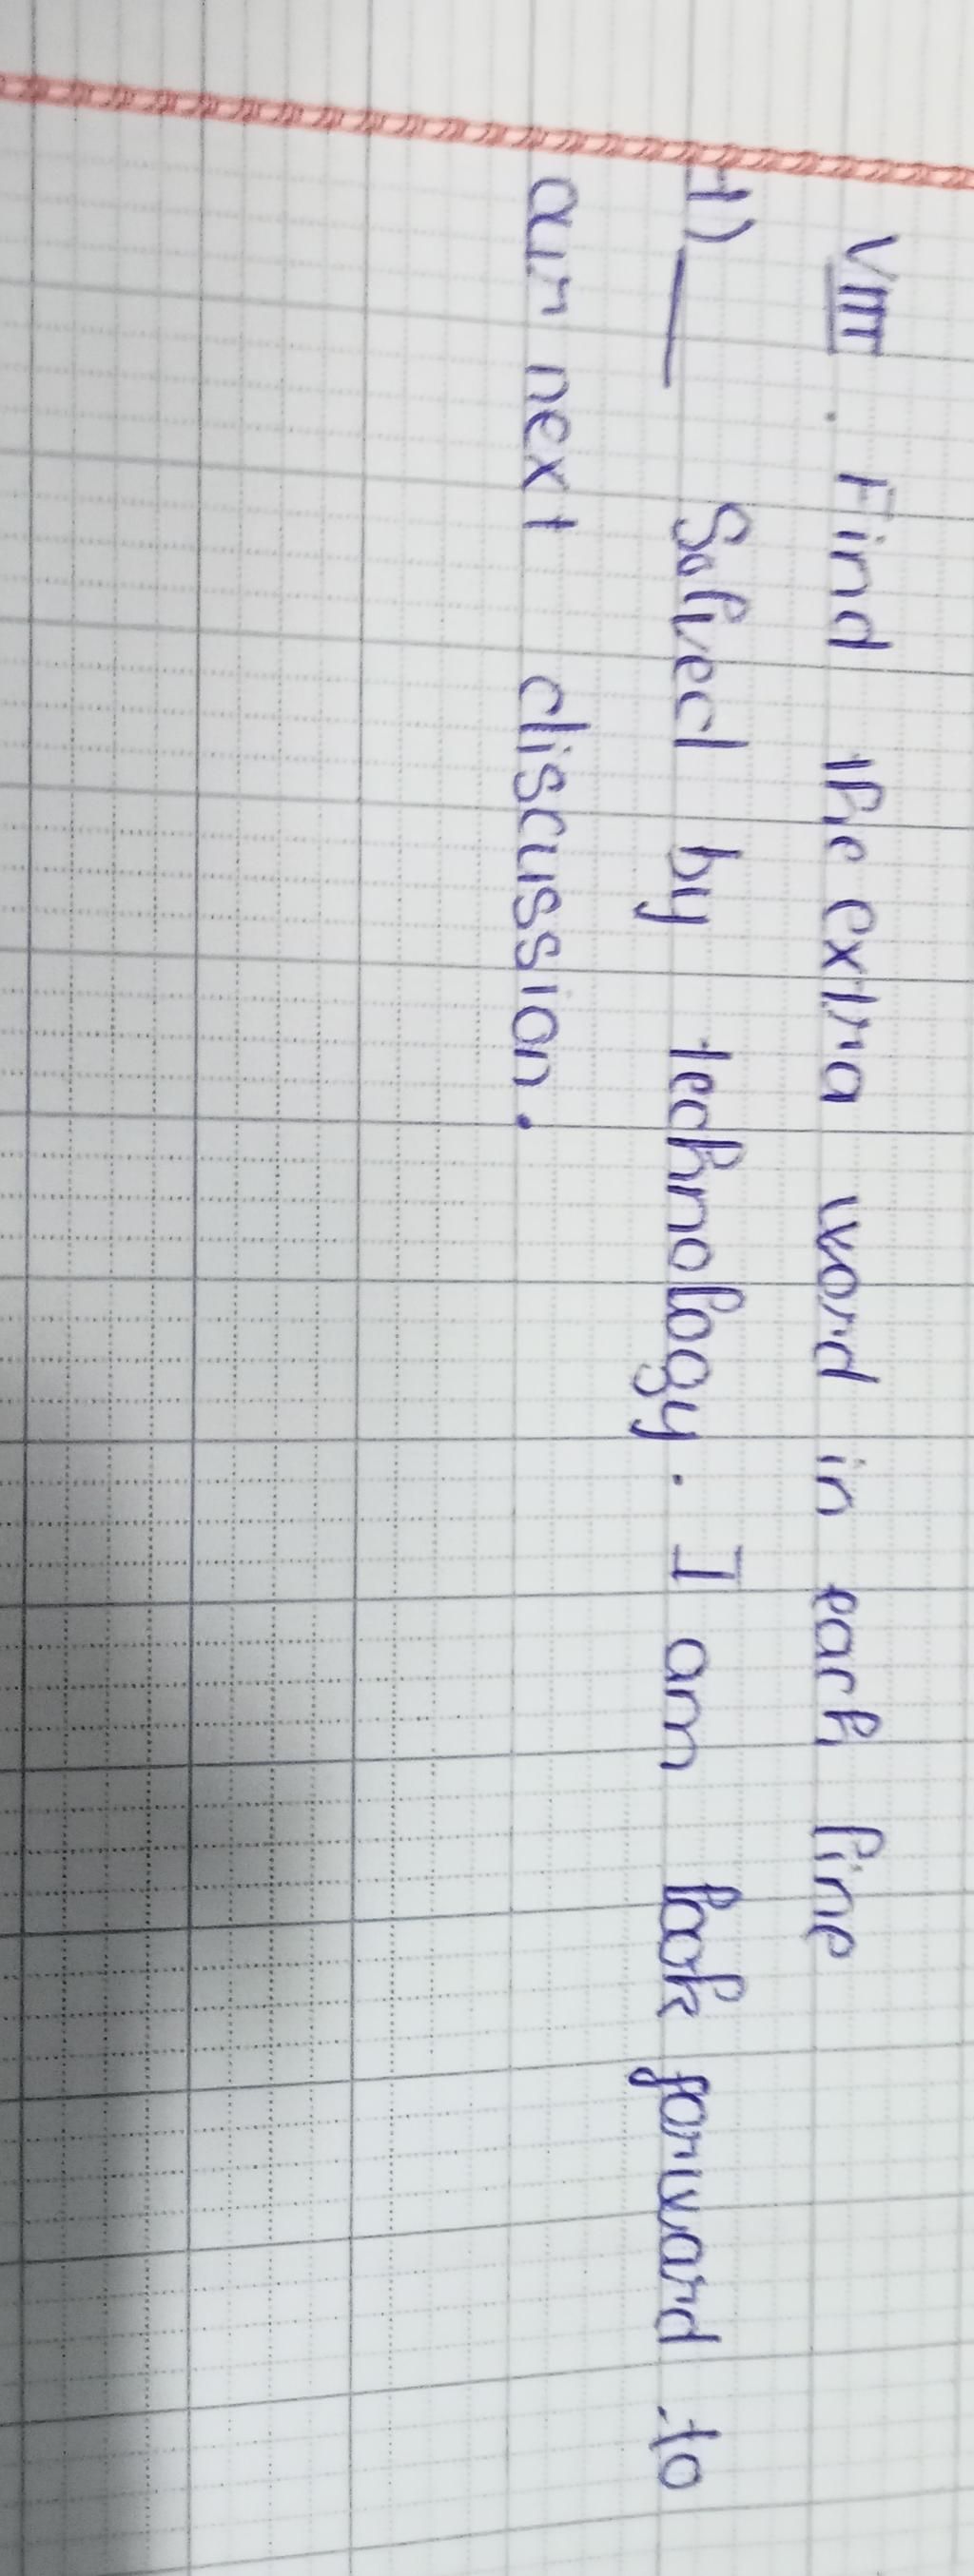 VIII. Find the extra word in each line
1) ___ Solved by technology. I am look forward to
our next discussion.